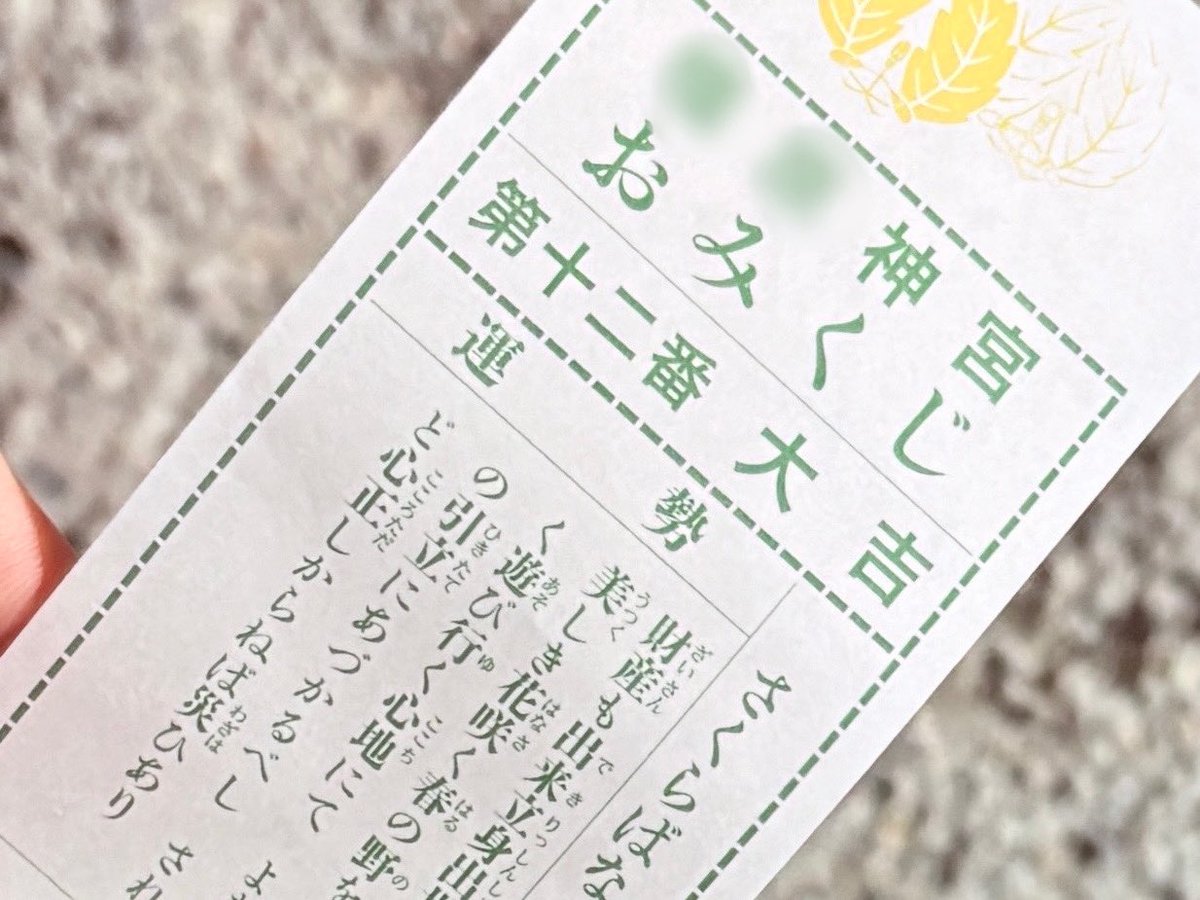 神宮
おみくじ
第十二番 大吉
運勢
さくらばな
財産も出来立身出
美しき花咲く春の野
く遊び行く心地にて よ
の引立にあづかるべし され
ど心正しからねば災ひあり